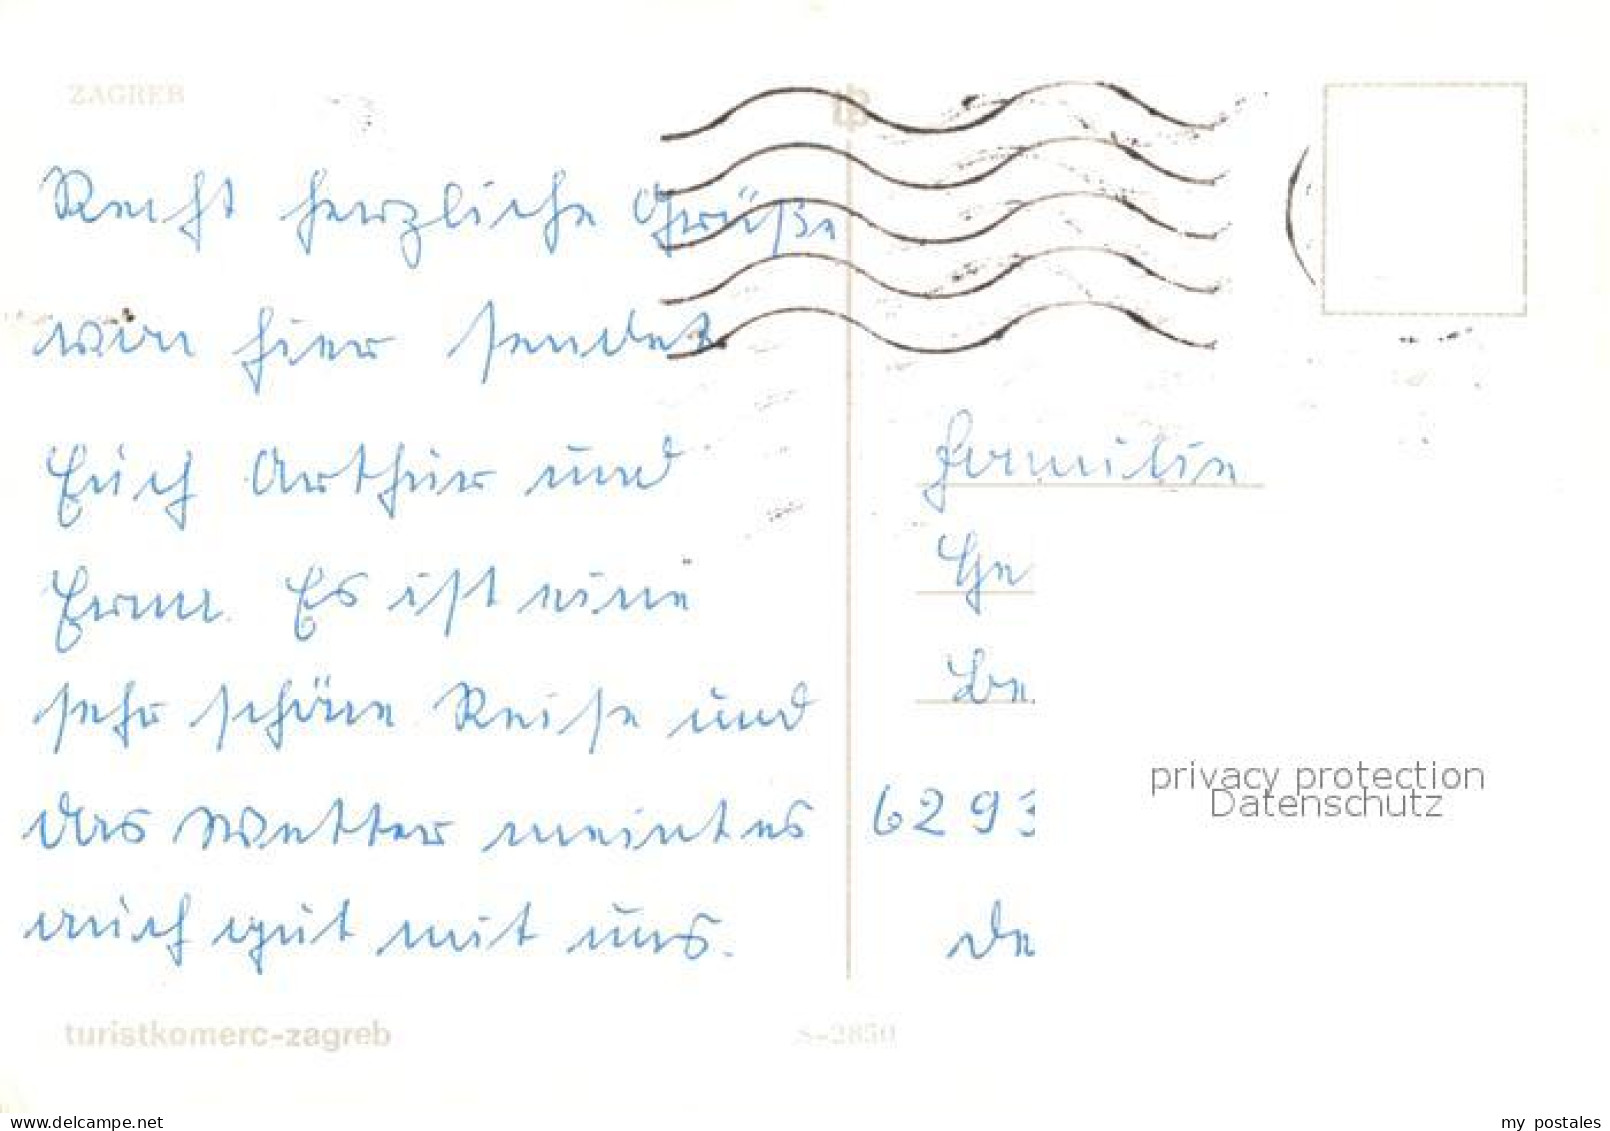 ZAGREB
Recht herzliche Grüße
von hier sendet
Euch Arthur und
Erna. Es ist eine
sehr schöne Reise und
das Wetter meint es
auch gut mit uns.
Familie
Ge
Be
6293
De
privacy protection
Datenschutz
turistkomerc-zagreb
S-2850
www.delcampe.net
my postales